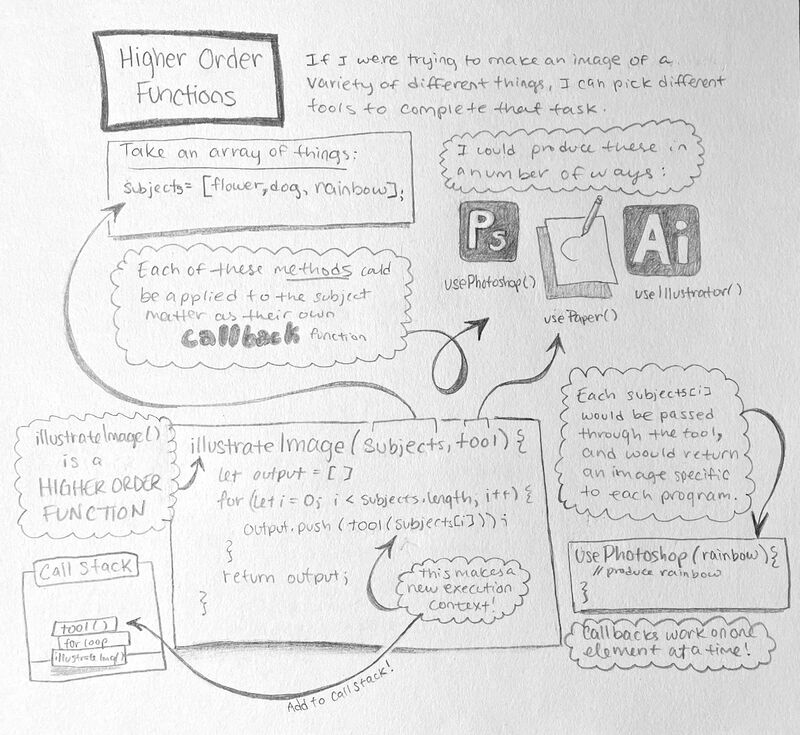 Higher Order
Functions
If I were trying to make an image of a
variety of different things, I can pick different
tools to complete that task.
Take an array of things:
subjects= [flower, dog, rainbow];
I could produce these in
a number of ways:
Ps
Ai
usePhotoshop()
usePaper()
useIllustrator()
Each of these methods could
be applied to the subject
matter as their own
callback function
illustrateImage()
is a
HIGHER ORDER
FUNCTION
illustrateImage(subjects, tool) {
let output = [ ]
for (let i = 0; i < subjects.length; i++) {
output.push (tool(subjects[i]));
}
return output;
}
this makes a
new execution
context!
Each subjects[i]
would be passed
through the tool,
and would return
an image specific
to each program.
usePhotoshop(rainbow){
// produce rainbow
}
Callbacks work on one
element at a time!
Call Stack
tool()
for loop
illustrateImg()
Add to callstack!